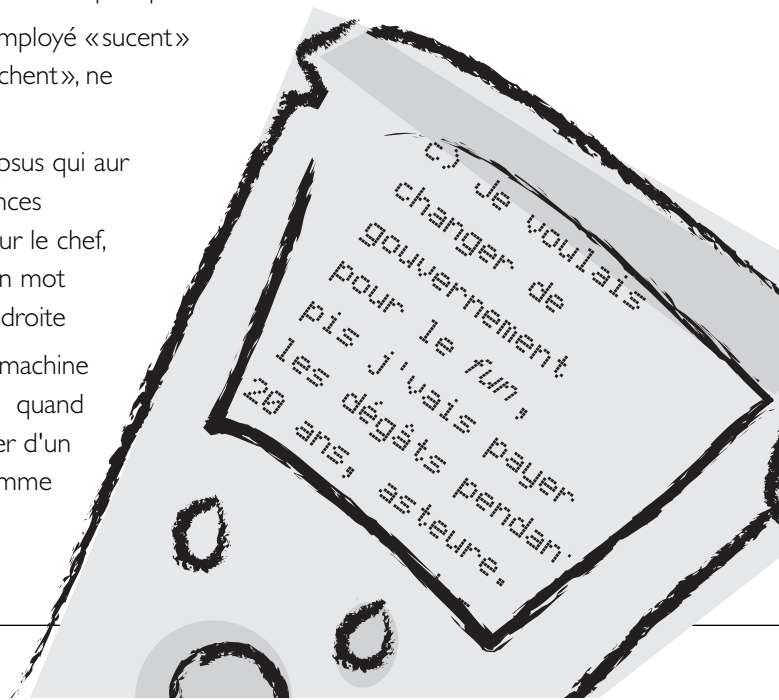 mployé «sucent»
chent», ne
psus qui aur
nces
ur le chef,
n mot
droite
machine
quand
er d'un
mme
c) Je voulais
changer de
gouvernement
pour le fun,
pis j'vais payer
les dégâts pendan
20 ans, asteure.